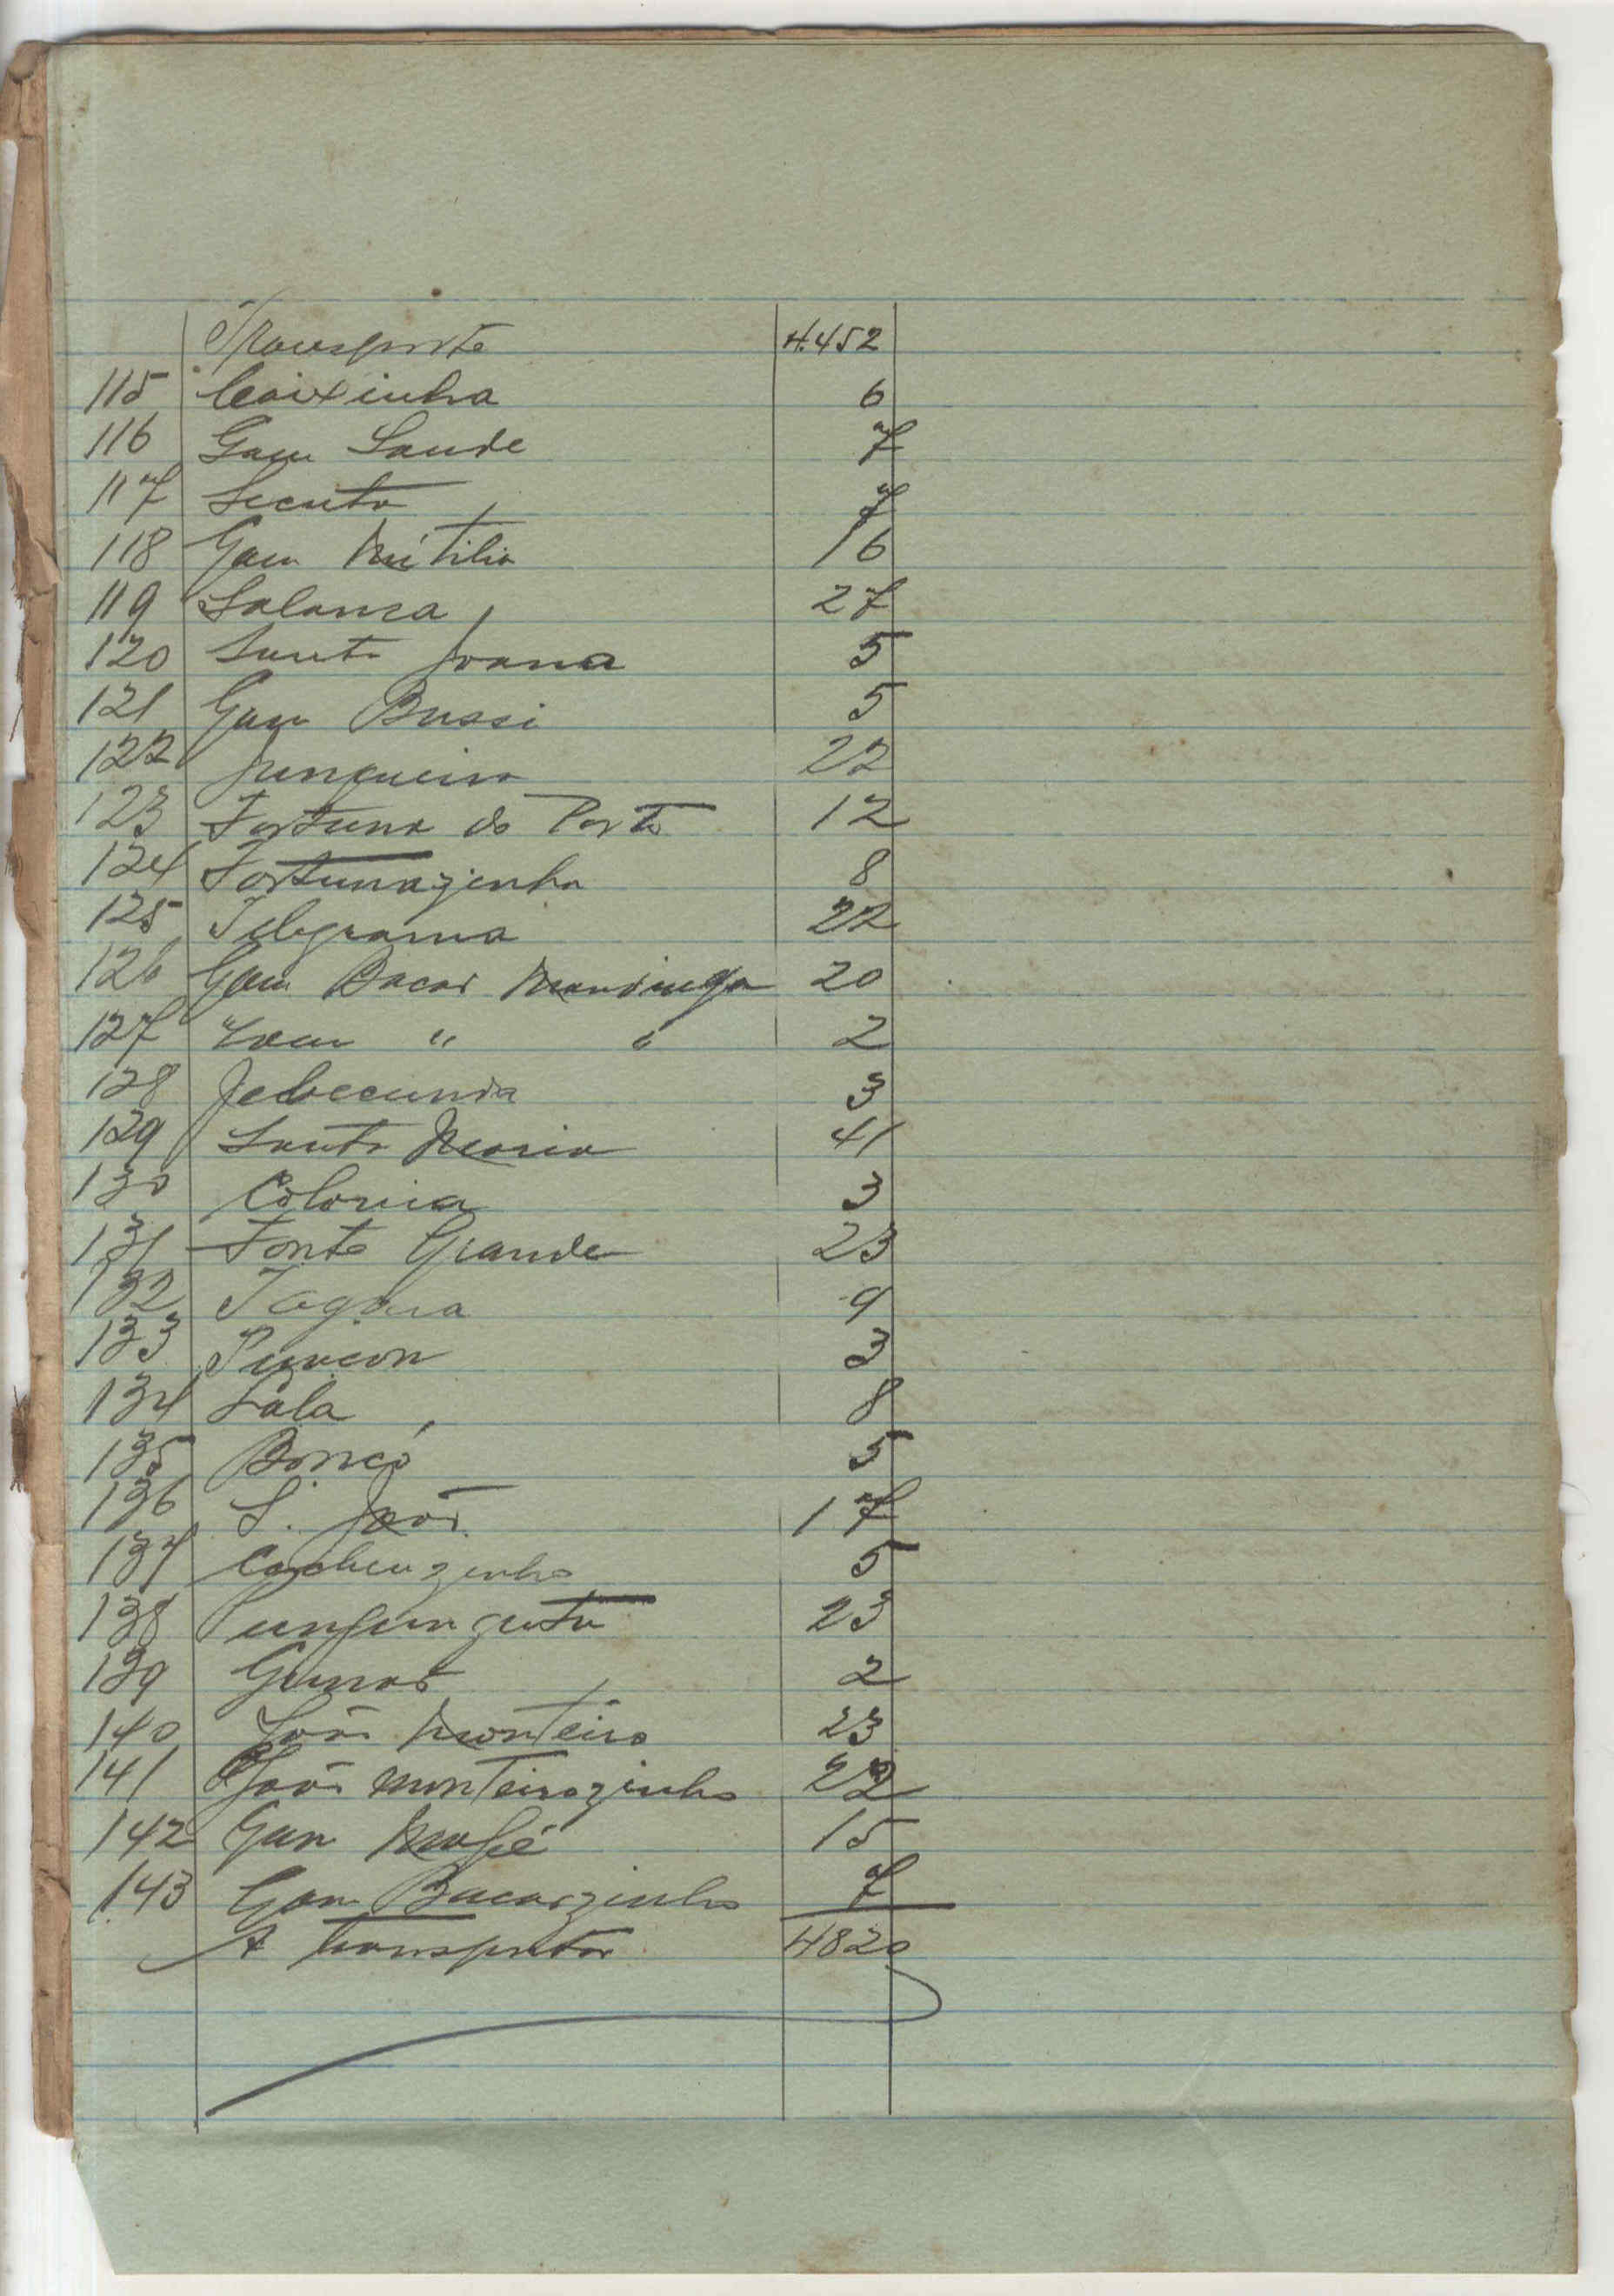 Transporte 4.452
115 Caixinha 6
116 Gam Sande 7
117 Secuto 7
118 Gam Mútilia 16
119 Salanca 27
120 Santa Joana 5
121 Gam Bussi 5
122 Junqueira 22
123 Fortuna do Porto 12
124 Fortunazinha 8
125 Telegrama 22
126 Gam Bacar Mandinga 20
127 " " 2
128 Jebecunda 3
129 Santa Maria 41
130 Colonia 3
131 Fonte Grande 23
132 9
133 3
134 Sala 8
135 Boncó 5
136 S. João 17
137 5
138 23
139 2
140 João Monteiro 23
141 João Monteirozinho 22
142 Gan Mafé 15
143 Gam Bacarzinho 7
A transportar 4820